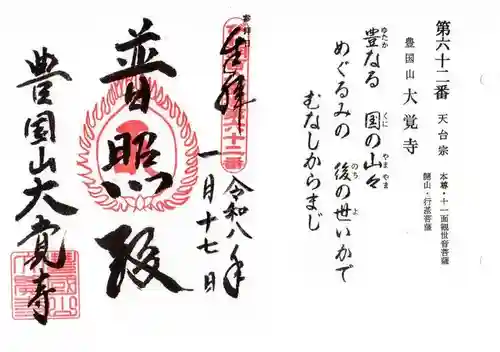 第六十二番 天台宗 本尊・十一面観世音菩薩
豊国山 大覚寺 開山・行基菩薩
豊なる 国の山々
ゆたか くに やま やま
めぐるみの 後の世いかで
のち よ
むなしからまじ
奉拝
令和八年
一月十七日
普照殿
豊国山大覚寺